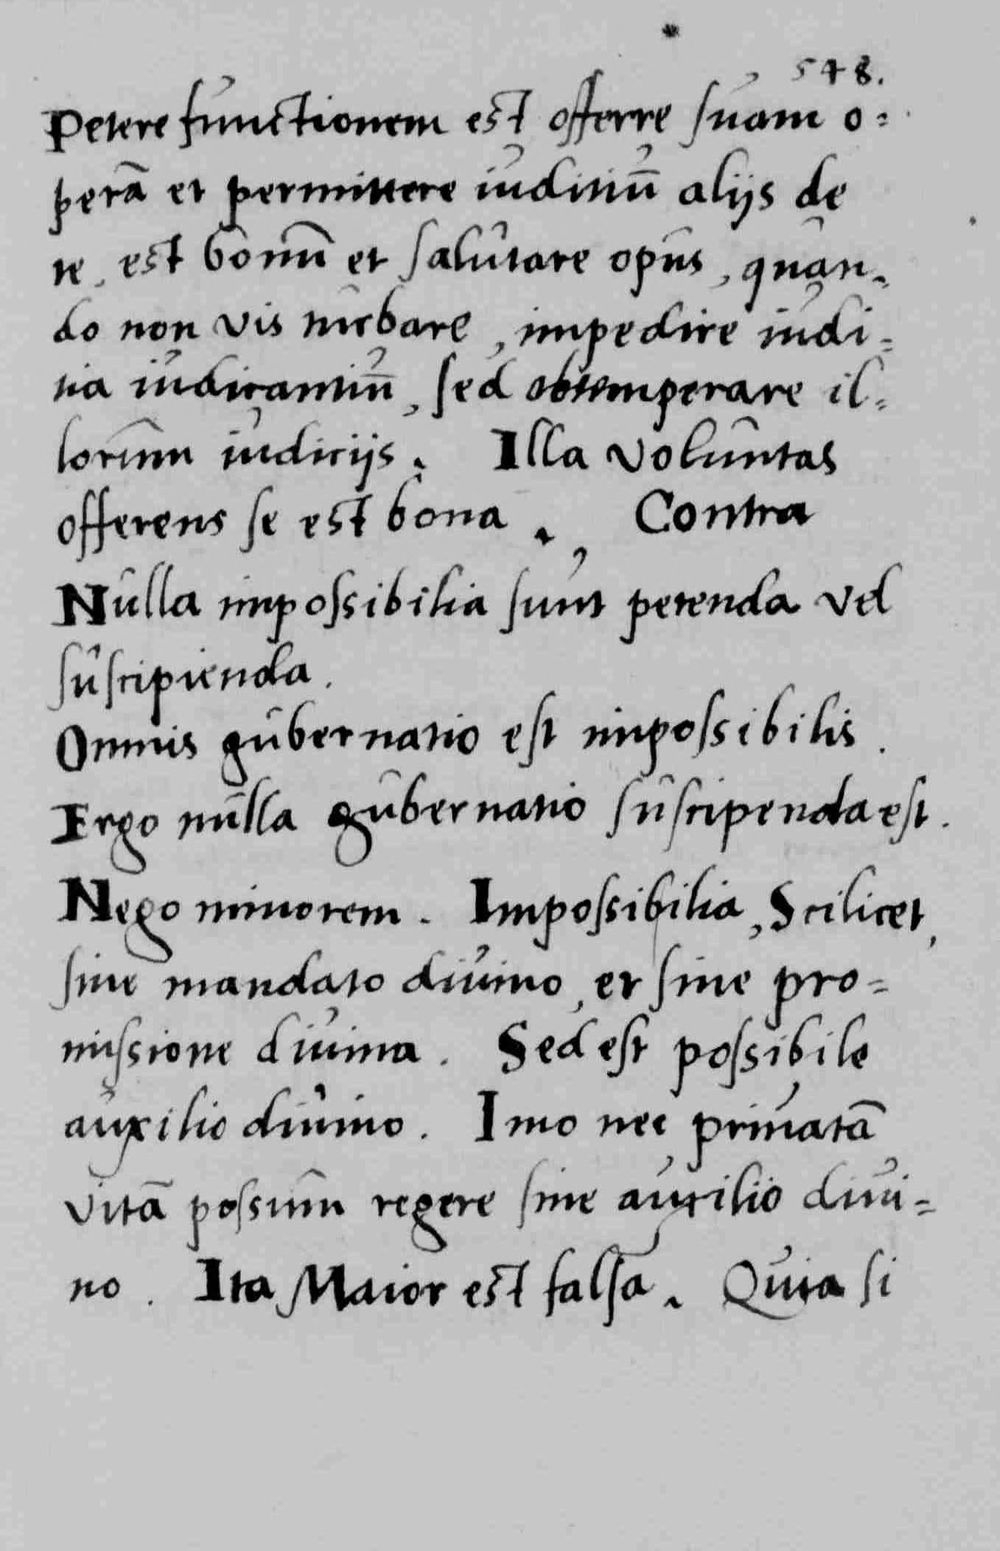 548.
Petere functionem est offerre suam o=
perā et permittere iuditiū alijs de
te, est bonū et salutare opus, quan=
do non vis turbare, impedire iudi=
tia iudicantiū, sed obtemperare il=
lorum iudicijs. Illa voluntas
offerens se est bona. Contra
Nulla impossibilia sunt petenda vel
suscipienda.
Omnis gubernatio est impossibilis.
Ergo nulla gubernatio suscipenda est.
Nego minorem. Impossibilia, Scilicet,
sine mandato divino, et sine pro=
missione divina. Sed est possibile
auxilio divino. Imo nec privatā
vitā possum regere sine auxilio divi=
no. Ita Maior est falsa. Quia si